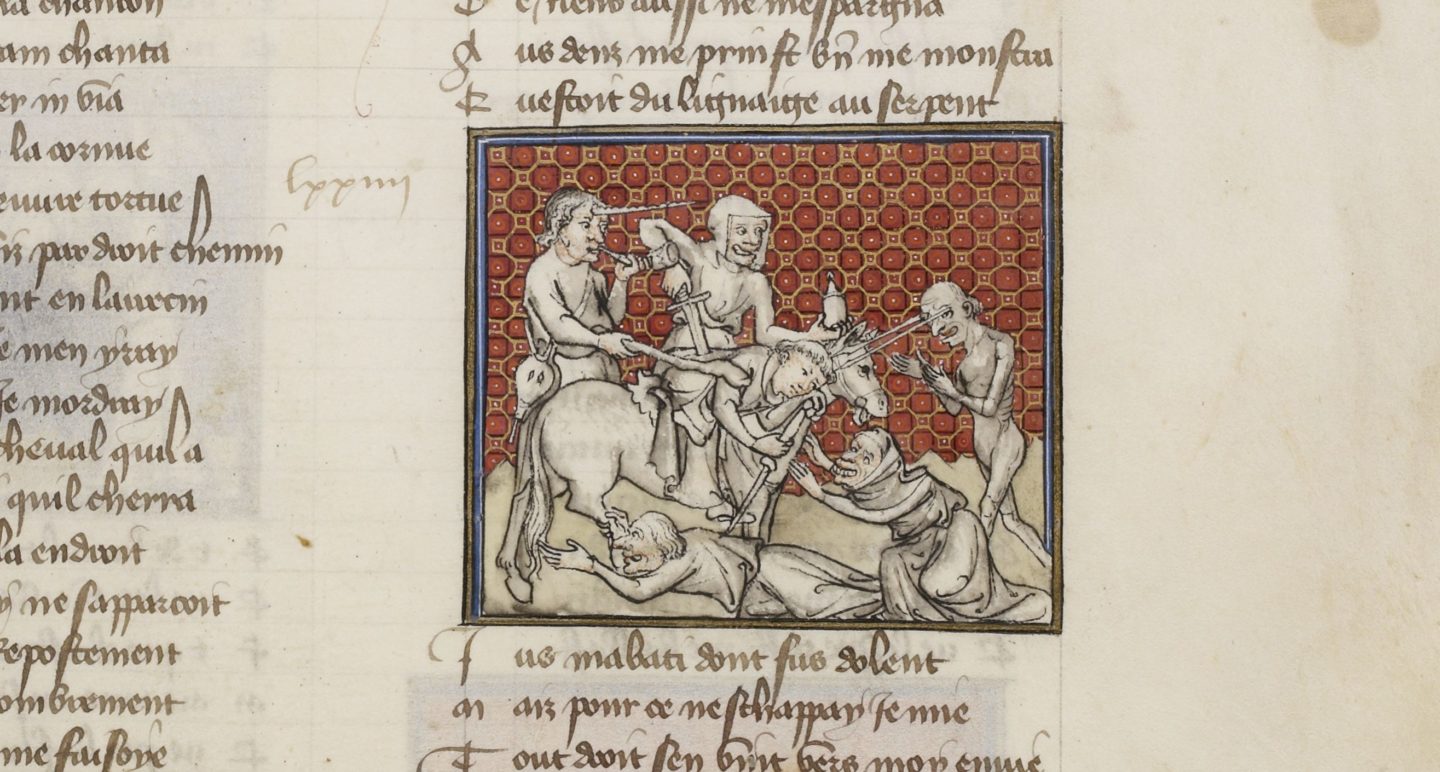 am chanta
er in via
la cornue
envire tortue
par droit chemin
nt en laurein
e men yray
Je mordray
cheval quil a
quil cherra
la endroit
ne sapparcoit
Repostement
ombrement
me faisoye
lxxiiii
E tiens aussi ne mespargna
A us denz me prinst bn me monstra
E uestoit du lignaige au serpent
J us mabati dont fus dolent
M aiz pour ce neschappay Je mie
T out droit sen vint vers moy envie